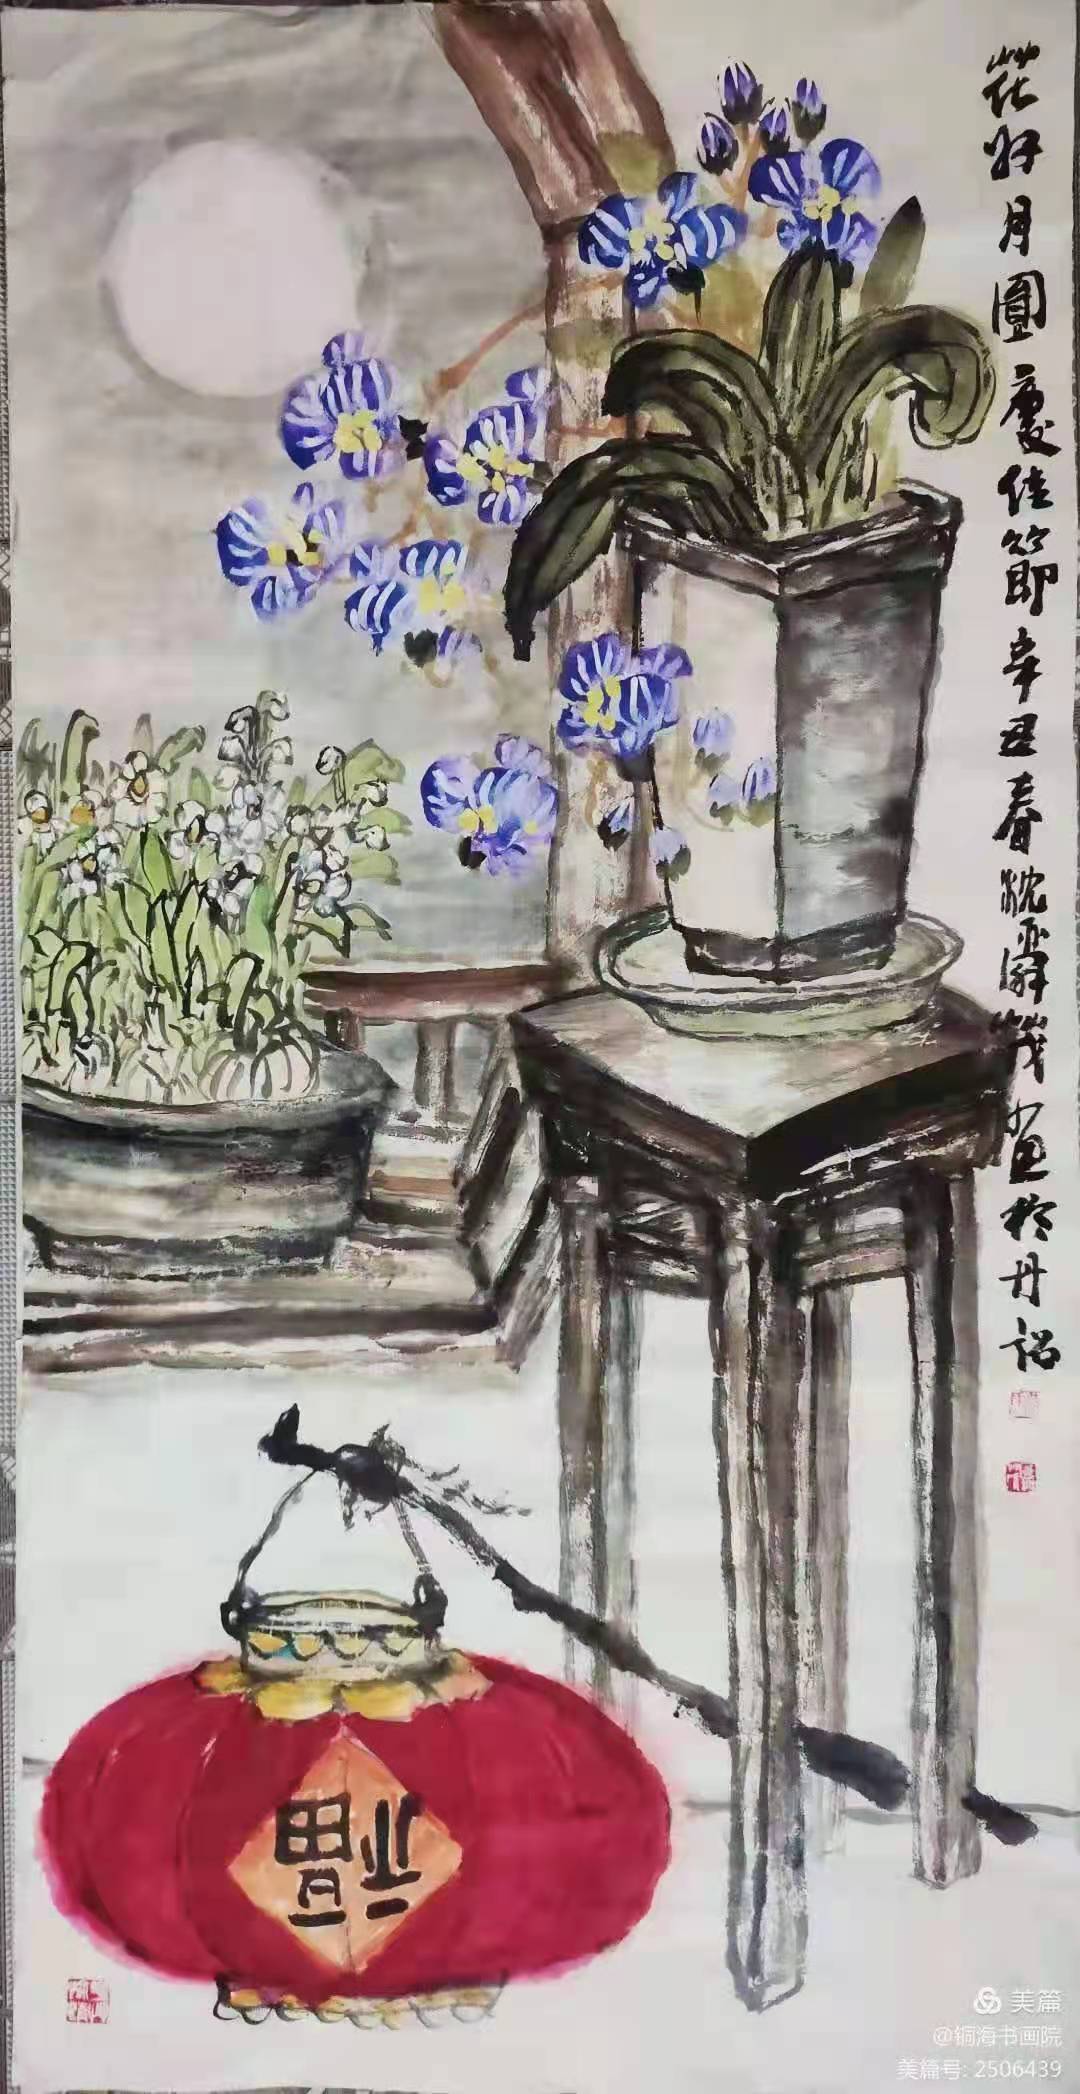 花好月圓慶佳節辛丑春
畫於丹
福
美篇
@铜海书画院
美篇号: 2506439